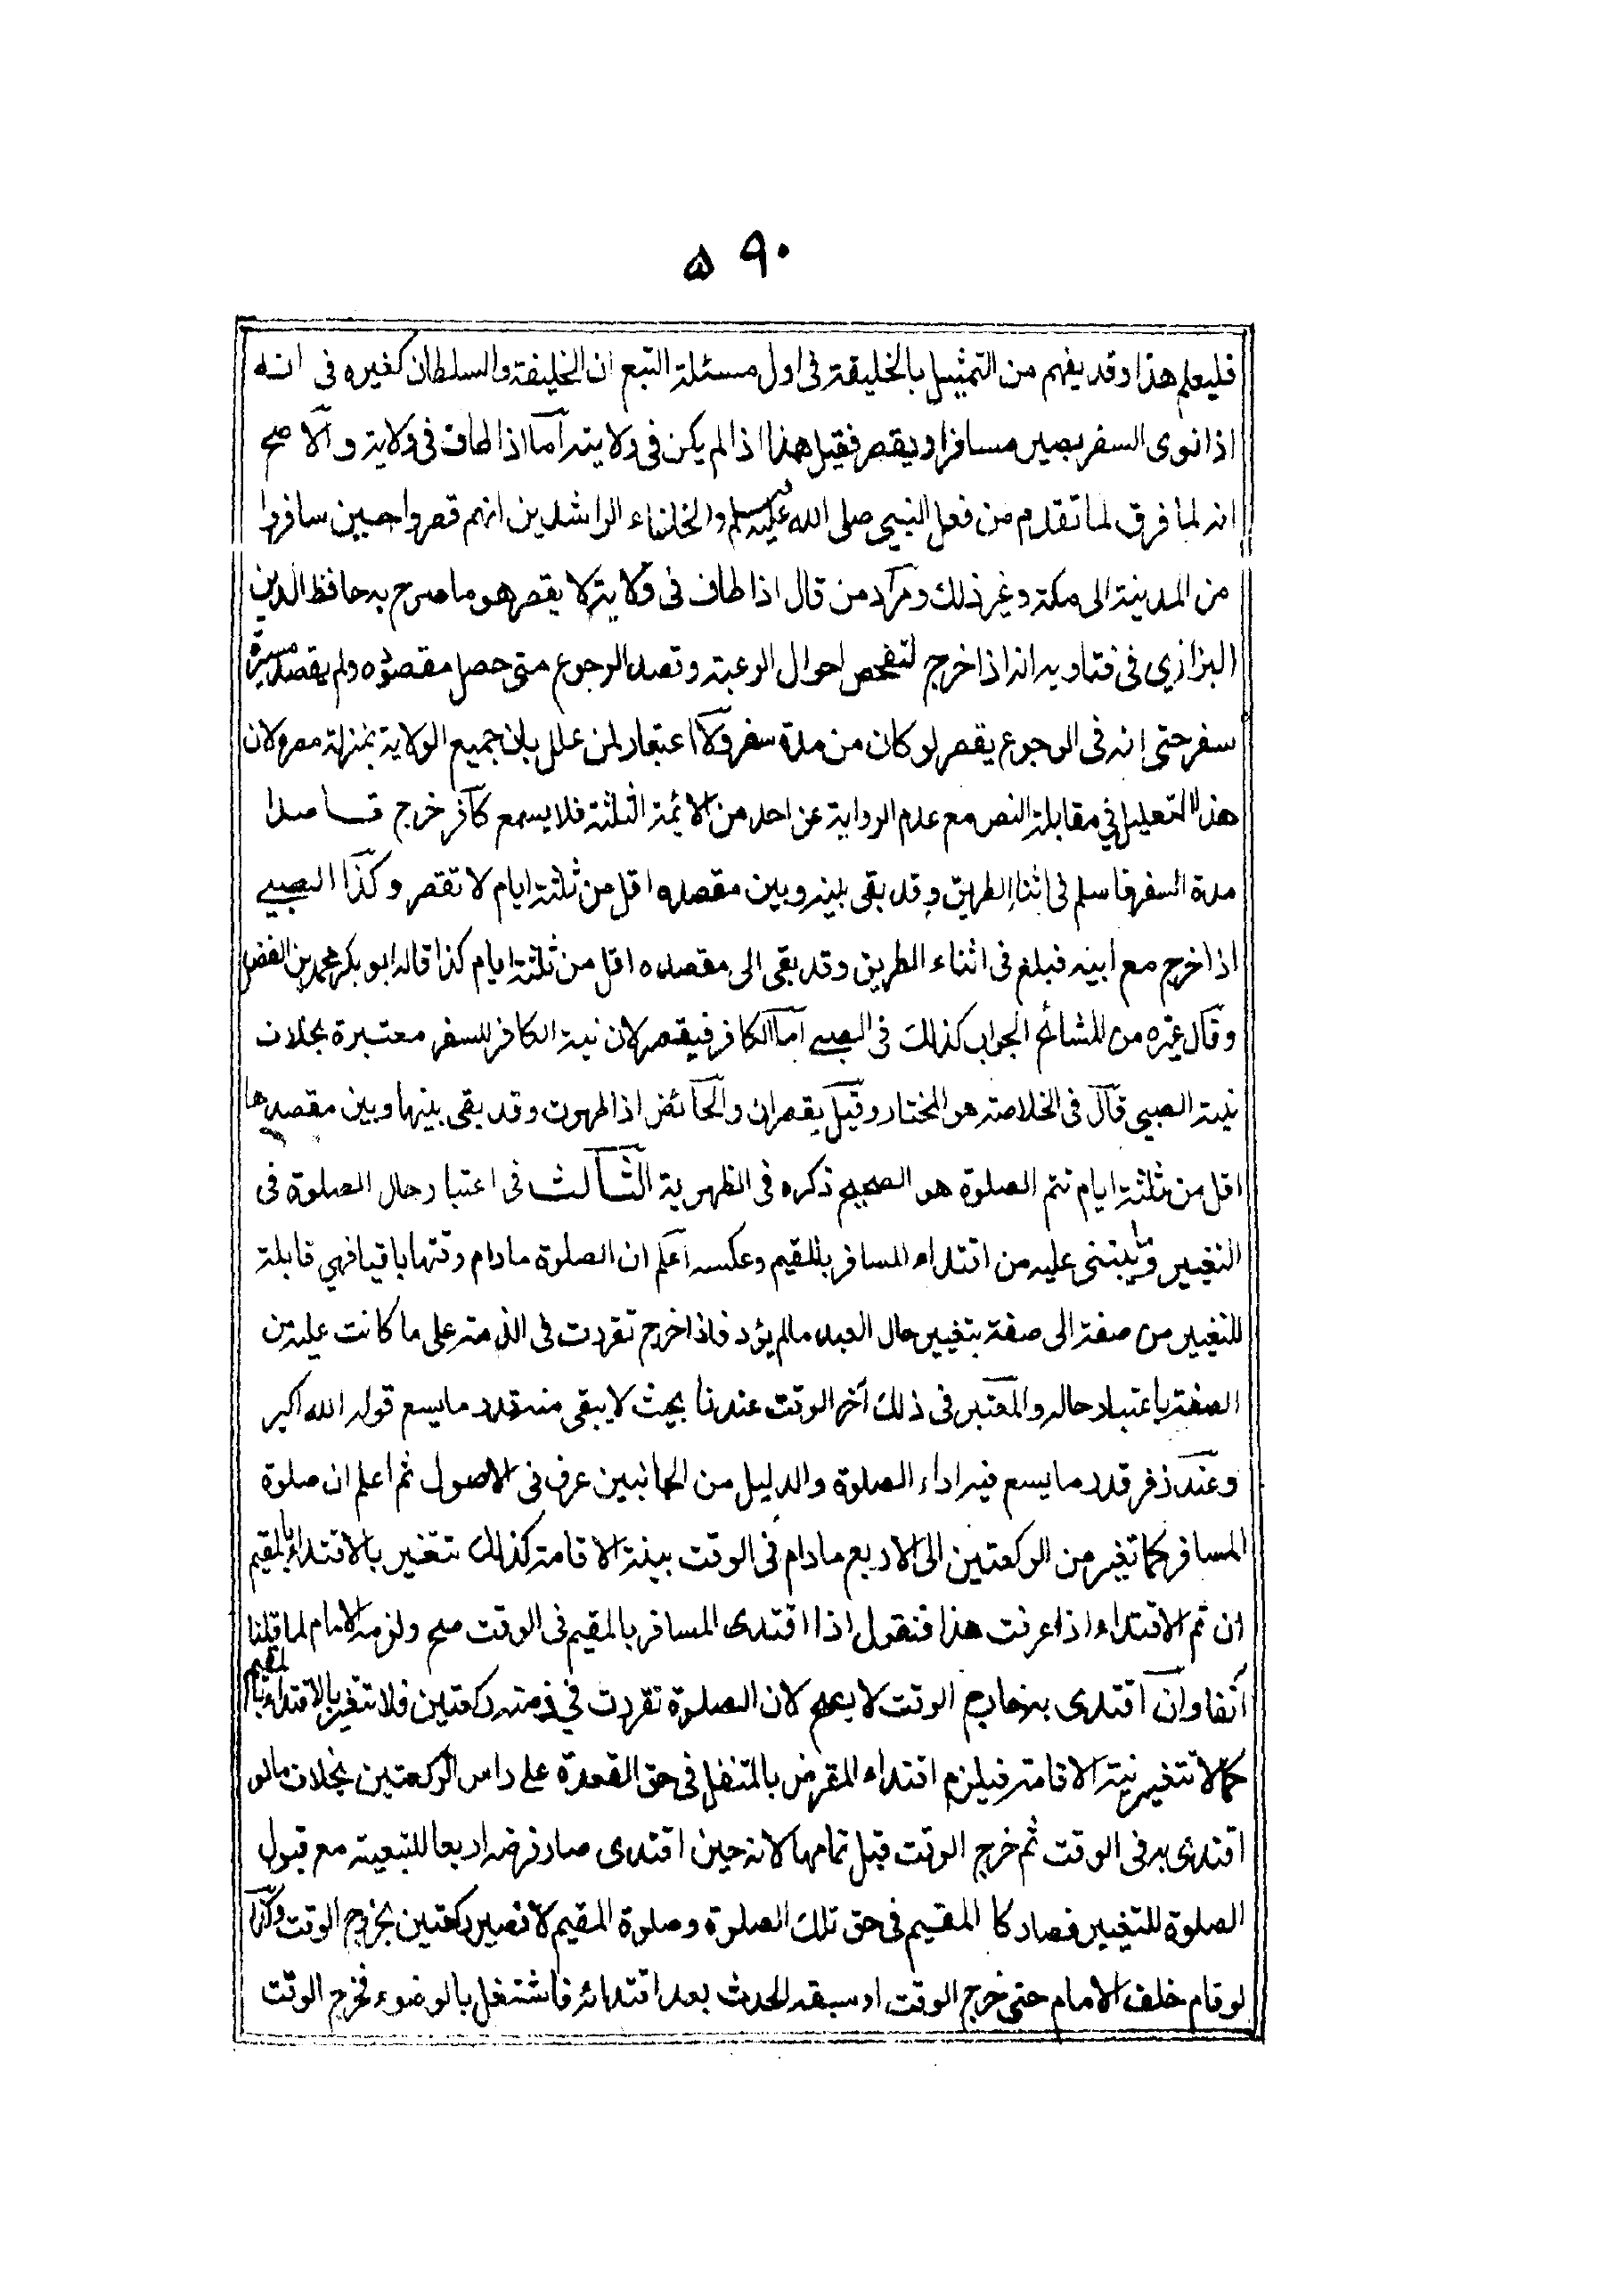 ٥٩٠
فليعلم هذا وقد يفهم من التمثيل بالخليفة في اول مسئلة التبع ان الخليفة والسلطان كغيره في انه
اذا نوى السفر يصير مسافرا ويقصر فقيل هذا اذا لم يكن في ولايته اما اذا طاف في ولايته والاصح
انه لا فرق لما تقدم من فعل النبي صلى الله عليه وسلم والخلفاء الراشدين انهم قصروا حين سافروا
من المدينة الى مكة وغير ذلك ومراد من قال اذا طاف في ولايته لا يقصر هو ما صرح به حافظ الدين
البزازي في فتاويه انه اذا خرج لتفحص احوال الرعية وقصد الرجوع متى حصل مقصوده ولم يقصد مسيرة
سفر حتى انه في الرجوع يقصر لو كان من مدة سفر ولا اعتبار لمن علل بان جميع الولاية بمنزلة مصره لان
هذا التعليل في مقابلة النص مع عدم الرواية عن احد من الائمة الثلثة فلا يسمع كافر خرج قاصدا
مدة السفر فاسلم في اثناء الطريق وقد بقى بينه وبين مقصده اقل من ثلثة ايام لا تقصر وكذا الصبي
اذا خرج مع ابيه فبلغ في اثناء الطريق وقد بقى الى مقصده اقل من ثلثة ايام كذا قاله ابو بكر محمد بن الفضل
وقال غيره من المشائخ الجواب كذلك في الصبي اما الكافر فيقصر لان نية الكافر للسفر معتبرة بخلاف
نية الصبي قال في الخلاصة هو المختار وقيل يقصران والحائض اذا طهرت وقد بقى بينها وبين مقصدها
اقل من ثلثة ايام تتم الصلوة هو الصحيح ذكره في الظهيرية الثالث في اعتبار حال الصلوة في
التغيير وما يبتنى عليه من اقتداء المسافر بالمقيم وعكسه اعلم ان الصلوة ما دام وقتها باقيا فهي قابلة
للتغيير من صفة الى صفة بتغيير حال العبد ما لم يؤد فاذا خرج تقررت في الذمة على ما كانت عليه من
الصفة باعتبار حاله والمعتبر في ذلك آخر الوقت عندنا بحيث لا يبقى منه قدر ما يسع قوله الله اكبر
وعند زفر قدر ما يسع فيه اداء الصلوة والدليل من الجانبين عرف في الاصول ثم اعلم ان صلوة
المسافر كما تغير من الركعتين الى الاربع ما دام في الوقت بنية الاقامة كذلك تتغير بالاقتداء بالمقيم
ان تم الاقتداء اذا عرفت هذا فنقول اذا اقتدى المسافر بالمقيم في الوقت صح ولزمه الاتمام لما قلنا
آنفا وان اقتدى به خارج الوقت لا يصح لان الصلوة تقررت في ذمته ركعتين فلا تتغير بالاقتداء بالمقيم
كما لا تتغير بنية الاقامة فيلزم اقتداء المفترض بالمتنفل في حق القعدة على راس الركعتين بخلاف ما لو
اقتدى به في الوقت ثم خرج الوقت قبل تمامها لانه حين اقتدى صار فرضه اربعا للتبعية مع قبول
الصلوة للتغيير فصار كالمقيم في حق تلك الصلوة وصلوة المقيم لا تصير ركعتين بخروج الوقت وكذا
لو قام خلف الامام حتى خرج الوقت او سبقه الحدث بعد اقتدائه فاشتغل بالوضوء فخرج الوقت